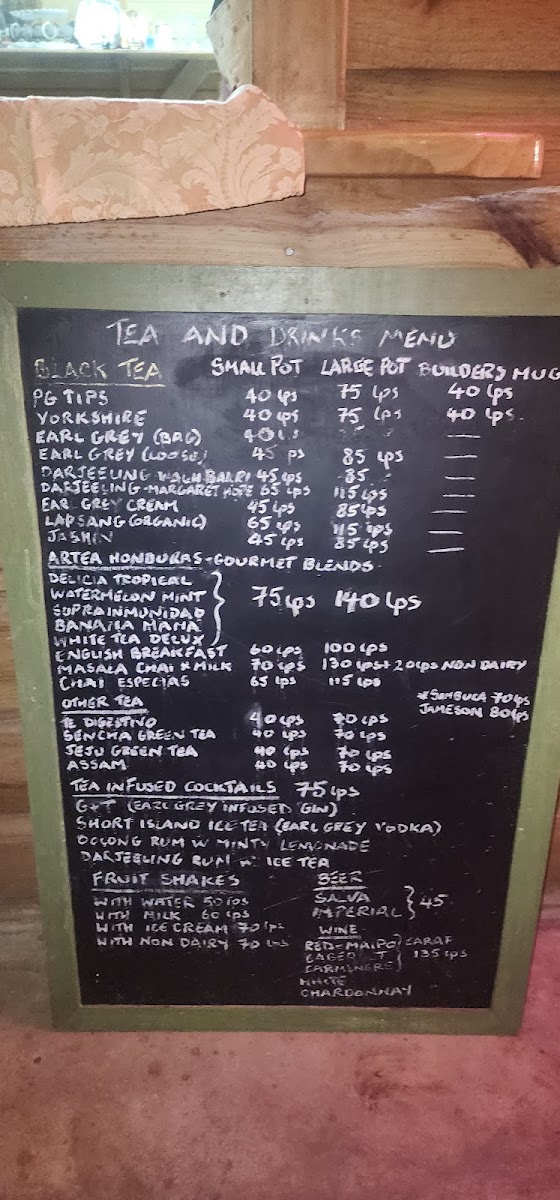 TEA AND DRINKS MENU
BLACK TEA SMALL POT LARGE POT BUILDERS MUG
PG TIPS 40 Lps 75 Lps 40 Lps
YORKSHIRE 40 Lps 75 Lps 40 Lps
EARL GREY (BAG) 40 —
EARL GREY (LOOSE) 45 ps 85 Lps —
DARJEELING BARRI 45 Lps 85 —
DARJEELING-MARGARET HOPE 65 Lps 115 Lps —
EARL GREY CREAM 45 Lps 85 Lps —
LAPSANG (ORGANIC) 65 Lps 115 Lps —
JASMIN 45 Lps 85 Lps —
ARTEA HONDURAS - GOURMET BLENDS.
DELICIA TROPICAL
WATERMELON MINT 75 Lps 140 Lps
SUPRAINMUNIDAD
BANANA MAMA
WHITE TEA DELUX
ENGLISH BREAKFAST 60 Lps 100 Lps
MASALA CHAI * MILK 70 Lps 130 Lps + 20 Lps NON DAIRY
CHAI ESPECIAS 65 Lps 115 Lps
* SAMBUCA 70 Lps
JAMESON 80 Lps
OTHER TEA
TE DIGESTIVO 40 Lps 70 Lps
SENCHA GREEN TEA 40 Lps 70 Lps
JEJU GREEN TEA 40 Lps 70 Lps
ASSAM 40 Lps 70 Lps
TEA INFUSED COCKTAILS 75 Lps
G+T (EARL GREY INFUSED GIN)
SHORT ISLAND ICE TEA (EARL GREY VODKA)
OOLONG RUM W MINTY LEMONADE
DARJEELING RUM W ICE TEA
FRUIT SHAKES
WITH WATER 50 Lps
WITH MILK 60 Lps
WITH ICE CREAM 70 Lps
WITH NON DAIRY 70 Lps
BEER
SALVA
IMPERIAL 45
WINE
RED-MAIPO CARAF
135 Lps
CARMENERE
WHITE
CHARDONNAY